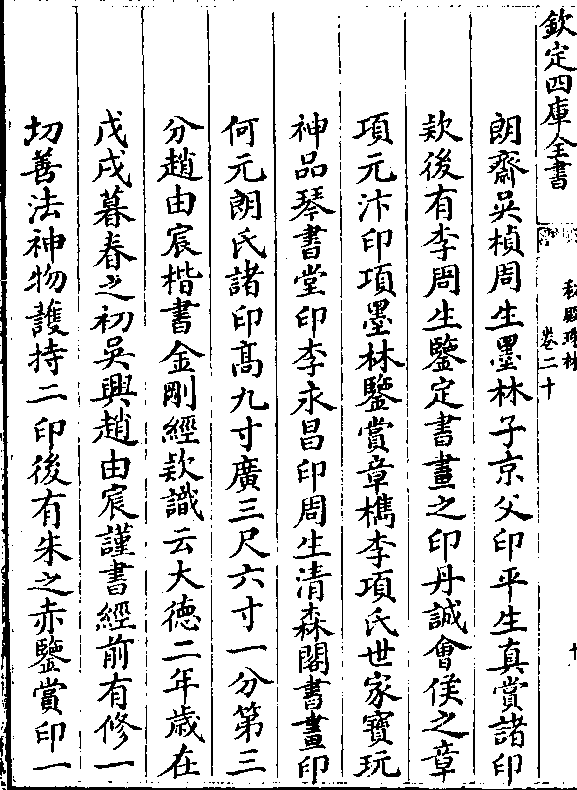 欽定四庫全書
秘殿珠林
卷二十
十
朗齋吳楨周生墨林子京父印平生真賞諸印
欵後有李周生鑒定書畫之印丹誠會侯之章
項元汴印項墨林鑒賞章檇李項氏世家寶玩
神品琴書堂印李永昌印周生清森閣書畫印
何元朗氏諸印髙九寸廣三尺六寸一分第三
分趙由宸楷書金剛經欵識云大德二年歲在
戊戌暮春之初吳興趙由宸謹書經前有修一
切善法神物護持二印後有朱之赤鑒賞印一